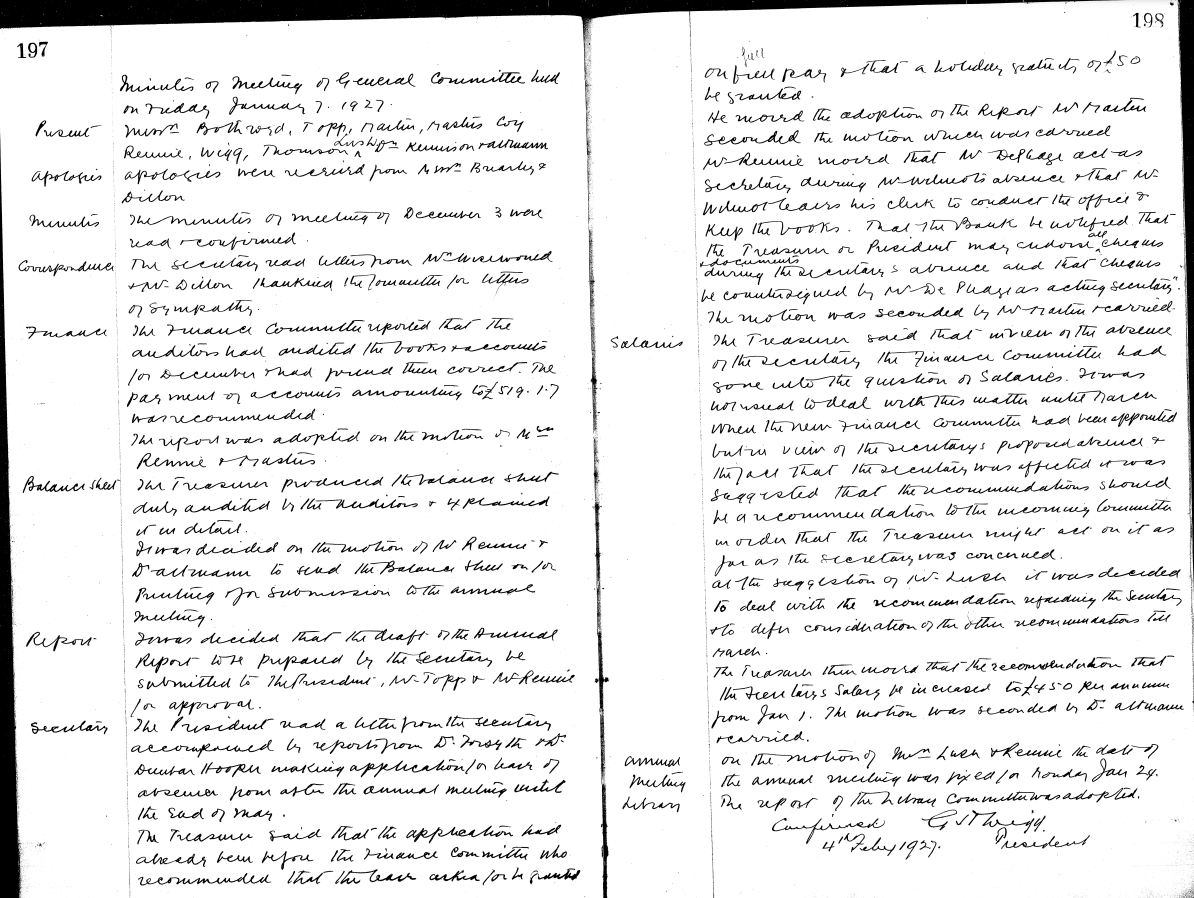 197
Minutes of Meeting of General Committee held
on Friday January 7. 1927.
Present Messrs Bothroyd, Topp, Martin, Masters Coy
Rennie, Wigg, Thomson Lush Drs Kennison & Altmann
Apologies Apologies were received from Messrs Brearley &
Dillon
Minutes The minutes of meeting of December 3 were
read & confirmed.
Correspondence The Secretary read letters from Mrs Wisewould
& Mr Dillon thanking the Committee for letters
of Sympathy.
Finance The Finance Committee reported that the
auditors had audited the books & accounts
for December & had found them correct. The
payment of accounts amounting to £519.1.7
was recommended.
The report was adopted on the motion of Messrs
Rennie & Masters.
Balance Sheet The Treasurer produced the balance sheet
duly audited by the Auditors & explained
it in detail.
It was decided on the motion of Mr Rennie &
Dr Altmann to send the Balance Sheet on for
Printing & for submission to the annual
meeting.
Report It was decided that the draft of the Annual
Report to be prepared by the Secretary be
submitted to the President, Mr Topp & Mr Rennie
for approval.
Secretary The President read a letter from the Secretary
accompanied by reports from Dr Forsyth & Dr
Dunbar Hooper making application for leave of
absence from after the annual meeting until
the End of May.
The Treasurer said that the application had
already been before the Finance Committee who
recommended that the leave asked for be granted
198
full
on full pay & that a holiday gratuity of £50
be granted.
He moved the adoption of the Report Mr Martin
seconded the motion which was carried
Mr Rennie moved that Mr DePhage act as
Secretary during Mr Wilmot's absence & that Mr
Wilmot leaves his clerk to conduct the office &
keep the books. That the Bank be notified that
the Treasurer or President may endorse all cheques
& documents
during the Secretary's absence and that "cheques
be countersigned by Mr De Phage as acting Secretary".
The motion was seconded by Mr Martin & carried.
Salaries The Treasurer said that in view of the absence
of the Secretary the Finance Committee had
gone into the question of Salaries. It was
not usual to deal with this matter until March
when the new Finance Committee had been appointed
but in view of the Secretary's proposed absence &
the fact that the Secretary was affected it was
suggested that the recommendations should
be a recommendation to the incoming Committee
in order that the Treasurer might act on it as
far as the Secretary was concerned.
At the suggestion of Mr Lush it was decided
to deal with the recommendation regarding the Secretary
& to defer consideration of the other recommendations till
March.
The Treasurer then moved that the recommendation that
the Secretary's Salary be increased to £450 per annum
from Jan 1. The motion was seconded by Dr Altmann
& carried.
Annual On the motion of Messrs Lush & Rennie the date of
Meeting the annual meeting was fixed for Monday Jan 24.
Library The report of the Library Committee was adopted.
Confirmed Wigg.
4th Feby 1927. President